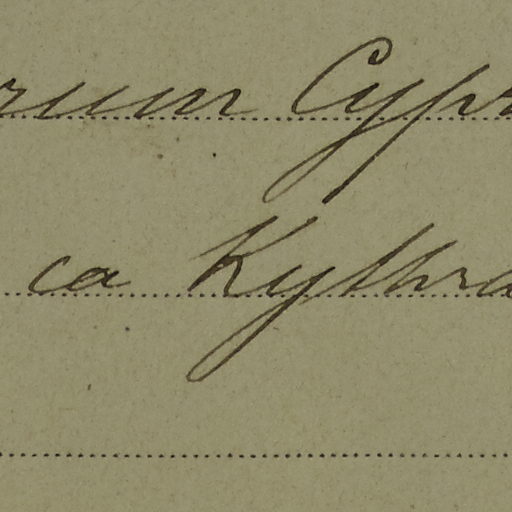 rum Cypr
ca Kythra